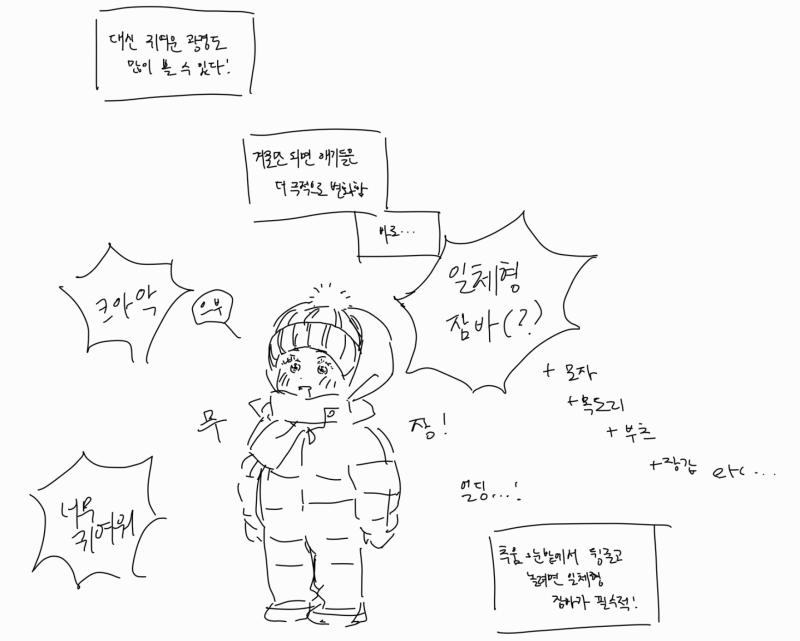 대신 귀여운 광경도
많이 볼 수 있다!
겨울만 되면 애기들은
더 극적으로 변화함
바로...
일체형
잠바(?)
크아악
으부
+ 모자
+목도리
+ 부츠
+장갑 etc...
무
장!
얼딩...!
너무
귀여워
추움 + 눈밭에서 뒹굴고
놀려면 일체형
잠바가 필수적!